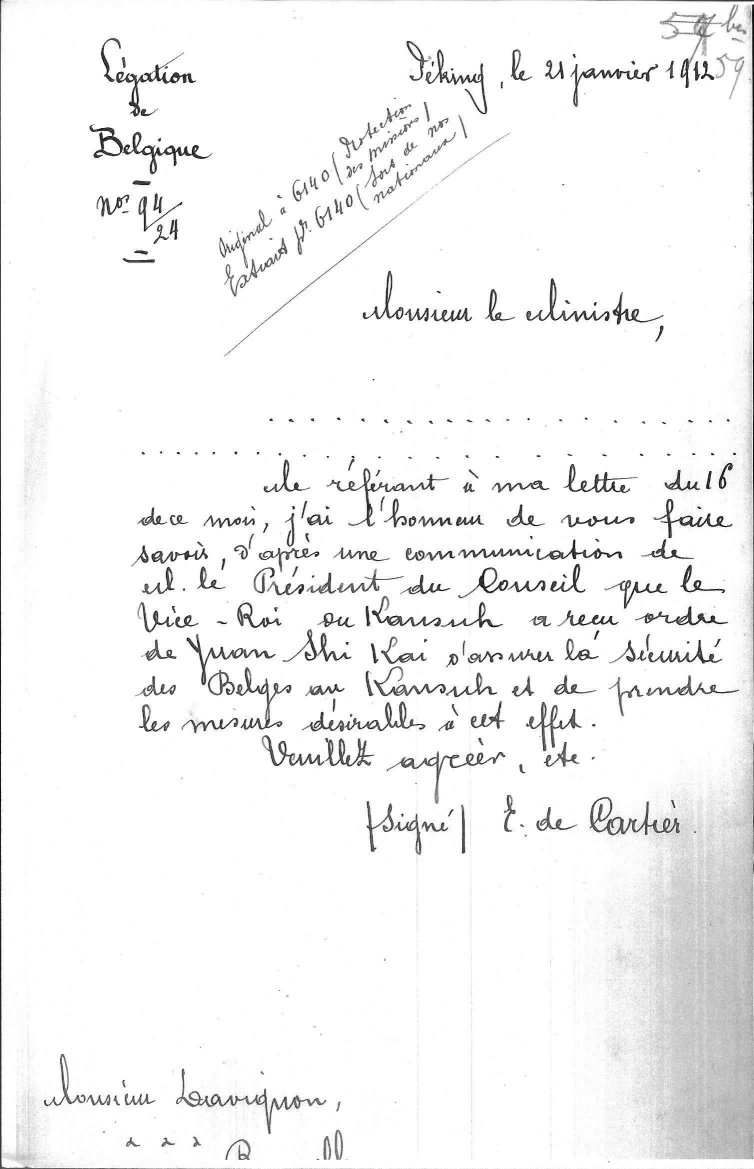 59
Légation
de
Belgique
Nos 94/24
Péking, le 21 janvier 1912
Original à 6140 (Protection
des missions)
Extrait pr. 6140 (Sort de nos
nationaux)
Monsieur le Ministre,
. . . . . . . . . . . . . . . .
. . . . . . . . . . . . . . . . . . . .
Me référant à ma lettre du 16
de ce mois, j'ai l'honneur de vous faire
savoir, d'après une communication de
M. le Président du Conseil que le
Vice-Roi du Kansuh a reçu ordre
de Yuan Shi Kai d'assurer la sécurité
des Belges au Kansuh et de prendre
les mesures désirables à cet effet.
Veuillez agréer, etc.
(Signé) E. de Cartier.
Monsieur Davignon,